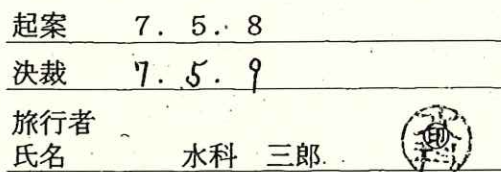 起案 7. 5. 8
決裁 7. 5. 9
旅行者
氏名 水科 三郎 印